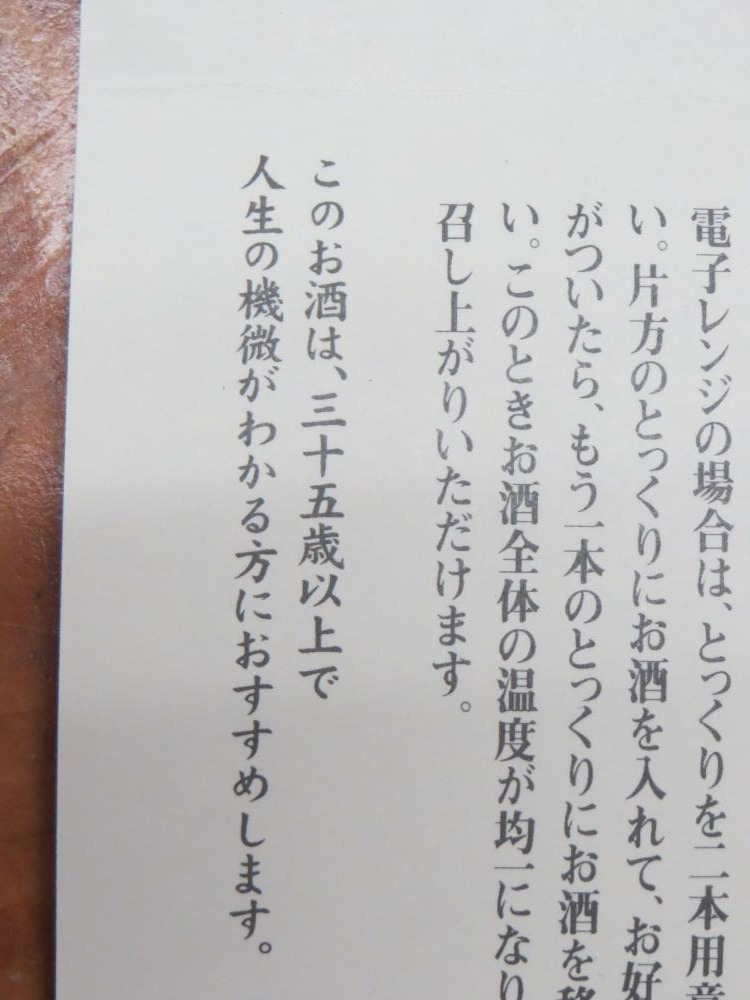 電子レンジの場合は、とっくりを二本用意
い。片方のとっくりにお酒を入れて、お好
がついたら、もう一本のとっくりにお酒を移
い。このときお酒全体の温度が均一になり
召し上がりいただけます。
このお酒は、三十五歳以上で
人生の機微がわかる方におすすめします。